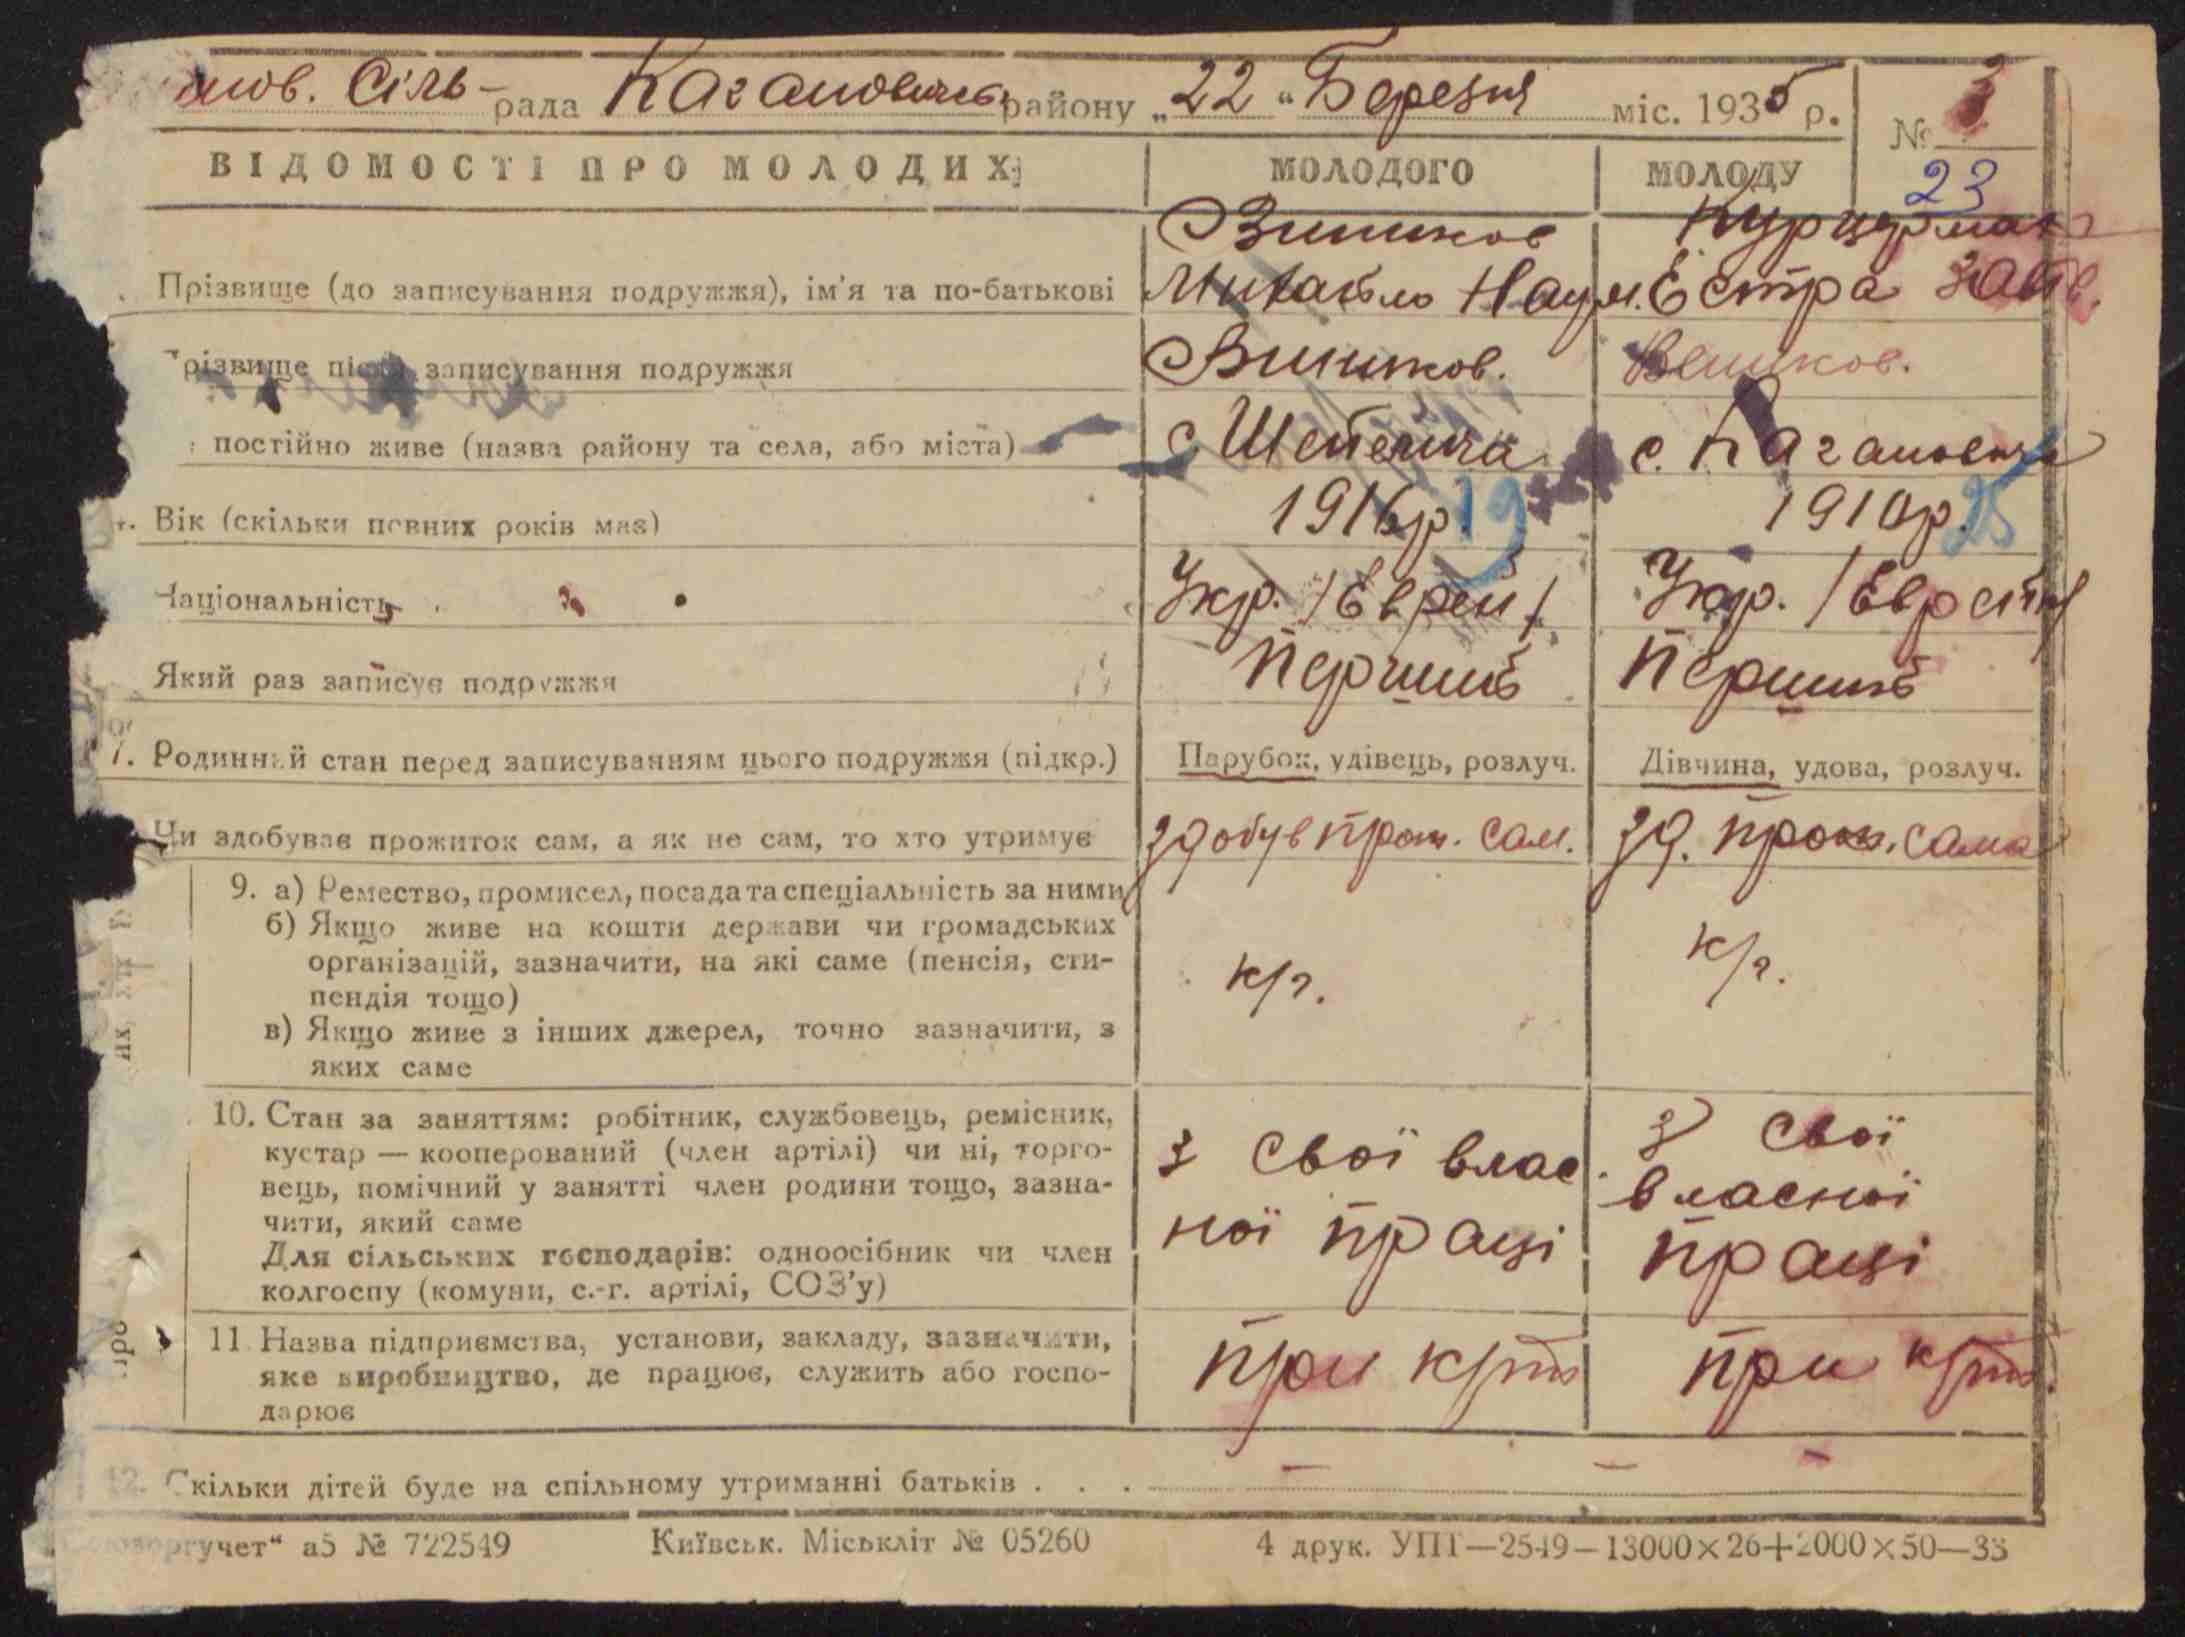 Сіль-рада Кагановичів району „22“ Березня міс. 1935 р. № 3
ВІДОМОСТІ ПРО МОЛОДИХ МОЛОДОГО МОЛОДУ 23
Прізвище (до записування подружжя), ім'я та по-батькові Михайло Наум. Естра
Прізвище після записування подружжя
постійно живе (назва району та села, або міста) с. с. Кагановичі
Вік (скільки повних років має) 1916р. 19 1910р. 25
Національність Укр. /Еврей/ Укр. /Еврейка/
Який раз записує подружжя Перший Перший
7. Родинний стан перед записуванням цього подружжя (підкр.) Парубок, удівець, розлуч. Дівчина, удова, розлуч.
Чи здобуває прожиток сам, а як не сам, то хто утримує здобув прож. сам. зд. прож. сама
9. а) Ремество, промисел, посада та спеціальність за ними
б) Якщо живе на кошти держави чи громадських
організацій, зазначити, на які саме (пенсія, сти-
пендія тощо) к/г. к/г.
в) Якщо живе з інших джерел, точно зазначити, з
яких саме
10. Стан за заняттям: робітник, службовець, ремісник,
кустар — кооперований (член артілі) чи ні, торго-
вець, помічний у занятті член родини тощо, зазна-
чити, який саме
Для сільських господарів: одноосібник чи член
колгоспу (комуни, с.-г. артілі, СОЗ'у)
з свої влас
ної праці
з свої
власної
праці
11. Назва підприємства, установи, закладу, зазначити,
яке виробництво, де працює, служить або госпо-
дарює
при при
12. Скільки дітей буде на спільному утриманні батьків . . . — — —
учет“ а5 № 722549 Київськ. Міськліт № 05260 4 друк. УПТ—2549—13000×26+2000×50—33